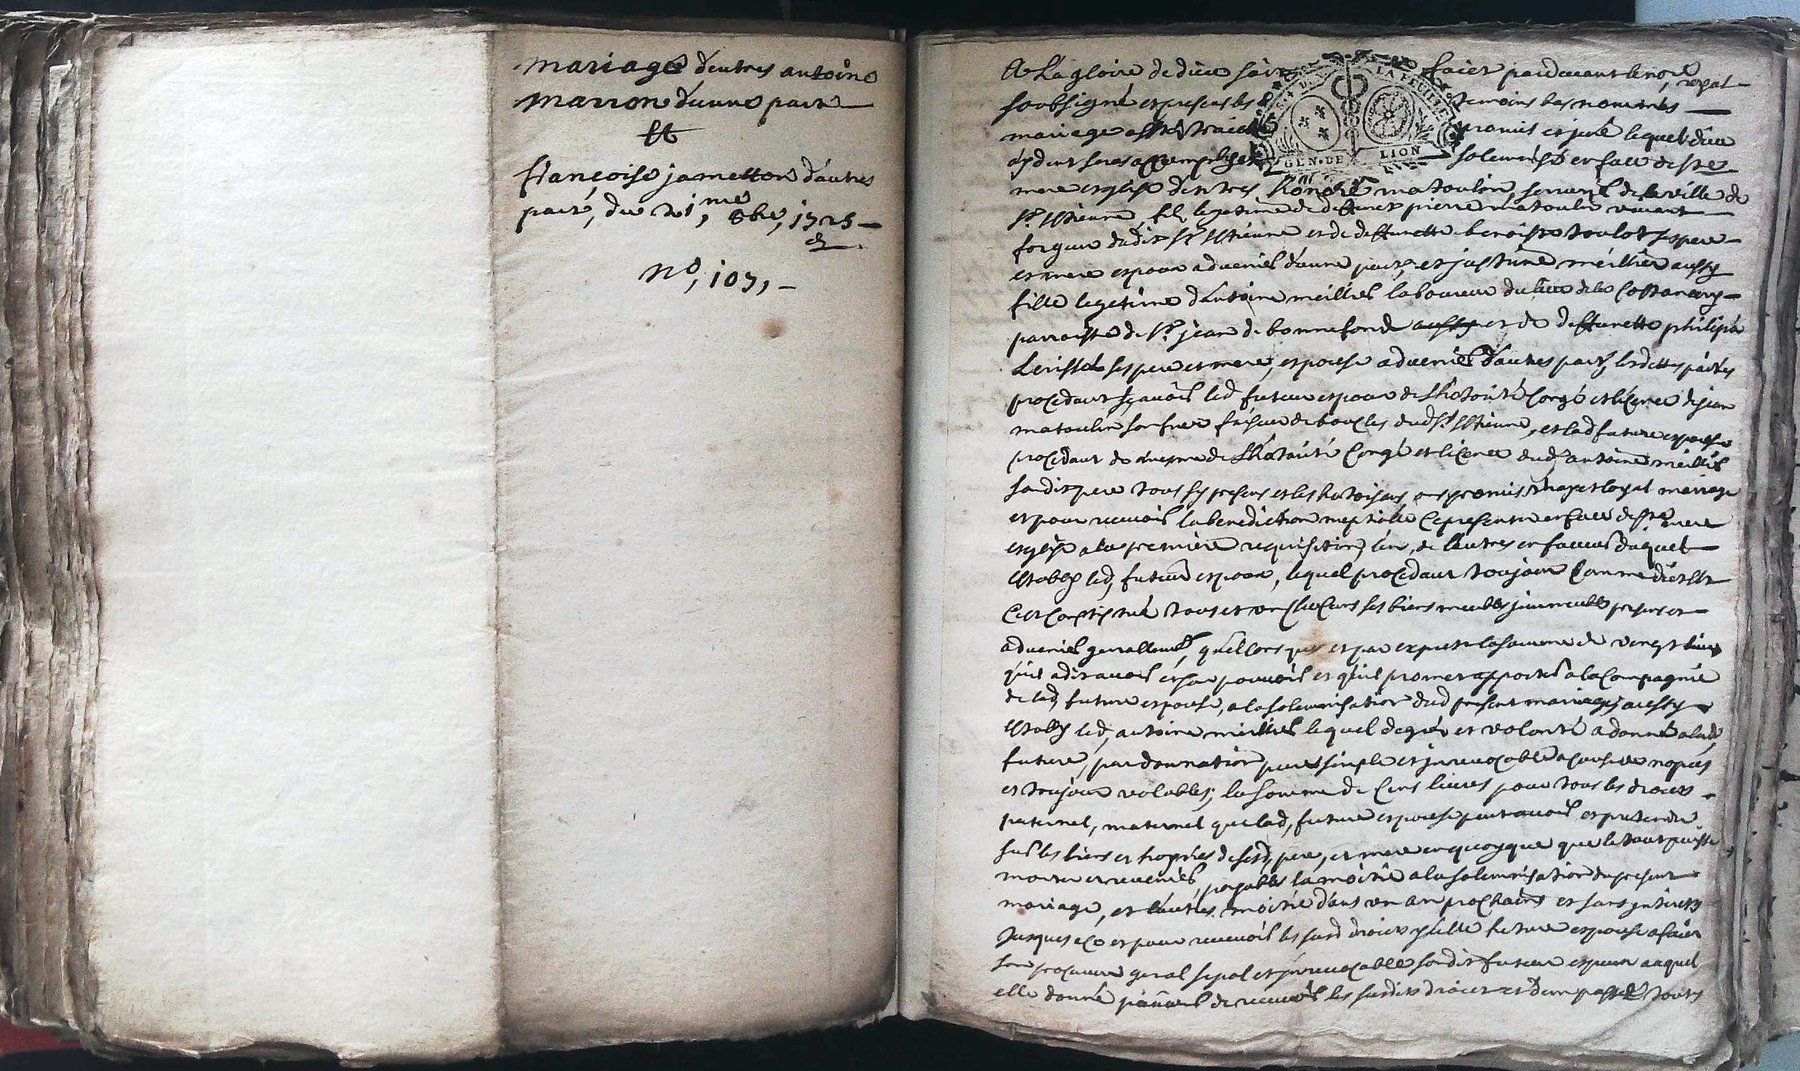 mariage d'entres antoine
marron d'une part
Et
françoise jametton d'autres
part, du 21,me 8bre, 1725
No, 107,
A La gloire de dieu soit faict pardevant le no.re royal
soubsigné et presens les temoins bas nommes
mariage a esté traicté promis et juré lequel dieu
aydant sera accomply et solemnisé en face de ste
mere esglize d'entres honoré matoulin serrurier de la ville de
st. Estienne, fils legetime de deffunct pierre matoulin vivant
forgeur dudit st Estienne et de deffunette benoiste toulot ses pere
et mere espoux advenir d'une part, et justine meillier aussy
fille legetime d'Antoine meillier laboureur du lieu de la
parroisse de st. jean de bonnefond aussy et de deffunette philipa
ses pere et mere, espouse advenir d'autres part, lesdittes parties
procedant sçavoir led, futeur espoux de l'hotorité congé et licence de jean
matoulin son frere faiseur de boucles dud st Estienne, et lad future espouse
procedant de mesme de l'hotorité congé et licence dud, antoine meillier
sondit pere tous ys presens et les hotorisans ont promis vray et loyal mariage
et pour recevoir la benediction nuptiale ce presenter en face de ste mere
esglize a la premiere requisition l'un, de l'autres en faveur duquel
establi led, futeur espoux, lequel procedant toujour comme dict est
c'est constitué tous et un chacuns ses biens meubles immeubles presens et
advenir generallement, quelconques et par exprest la somme de vingt livres
qu'il a dit avoir en son pouvoir et qu'il promet apporter a la compagnie
de lad, future espouse, a la solemnisation dud present mariage, aussy
establi led, antoine meillier lequel de gré et volonté a donné a lad,
future, par donnation pure simple et irrevocable a cause de nopces
et toujour valables, la somme de cens livres pour tous les droicts
paternel, maternel que lad, future espouse peut avoir et pretendre
sur les biens et hopries de sesd, pere, et mere en quoyque que le tout puisse
monter et revenir, payables la moitié a la solemnisation du present
mariage, et l'autres moitié dans un an prochain et sans interests
jusques a ce et pour recevoir les susd droicts ycelle future espouse a faict
son procureur general special et irrevocable sondit futeur espoux auquel
elle donné pouvoir de recevoir les susdits droict et d'en passer touts
GEN. DE LION